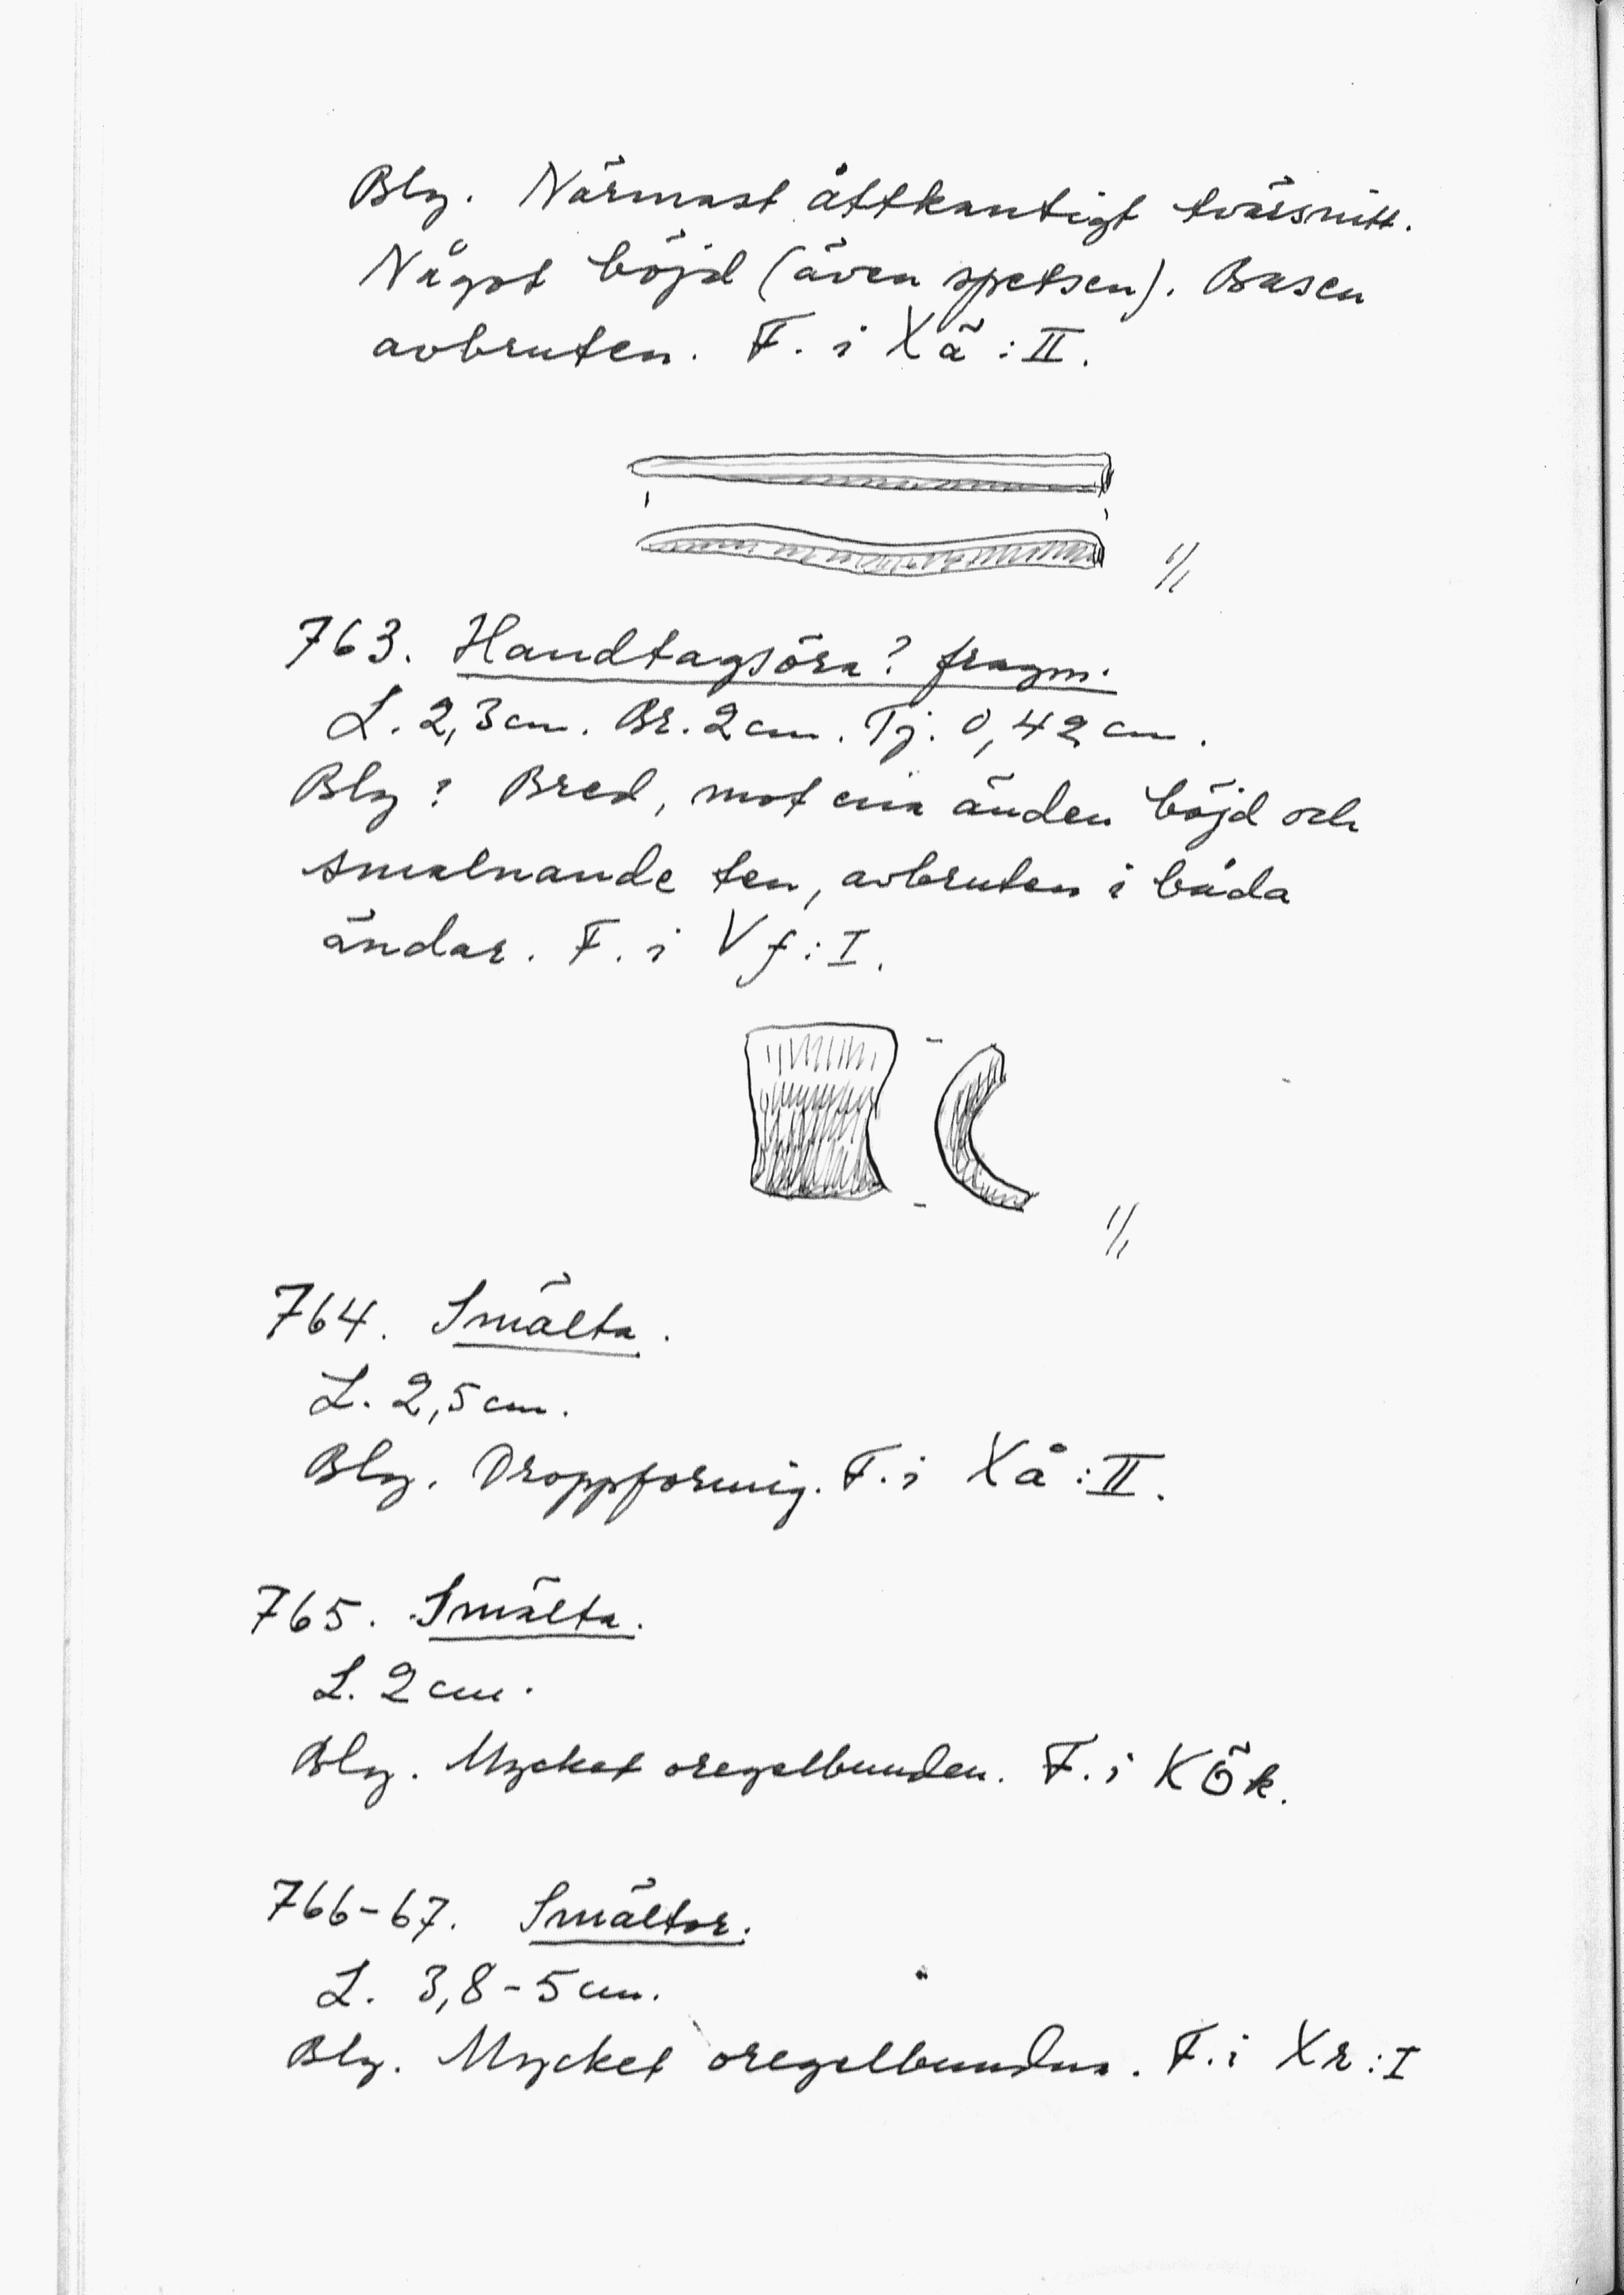 Blz. Närmast åttkantigt tvärsnitt.
Något böjd (även spetsen). Basen
avbruten. F. i Xä:II.
1/1
763. Handtagsöra? fragm.
L. 2,3 cm. Br. 2 cm. Tj. 0,42 cm.
Blz? Bred, mot ena änden böjd och
smalnande ten, avbruten i båda
ändar. F. i Vf:I.
1/1
764. Smälta.
L. 2,5 cm.
Blz. Droppformig. F. i Xå:II.
765. Smälta.
L. 2 cm.
Blz. Mycket oregelbunden. F. i KÖk.
766-67. Smältor.
L. 3,8-5 cm.
Blz. Mycket oregelbundna. F. i Xr:I